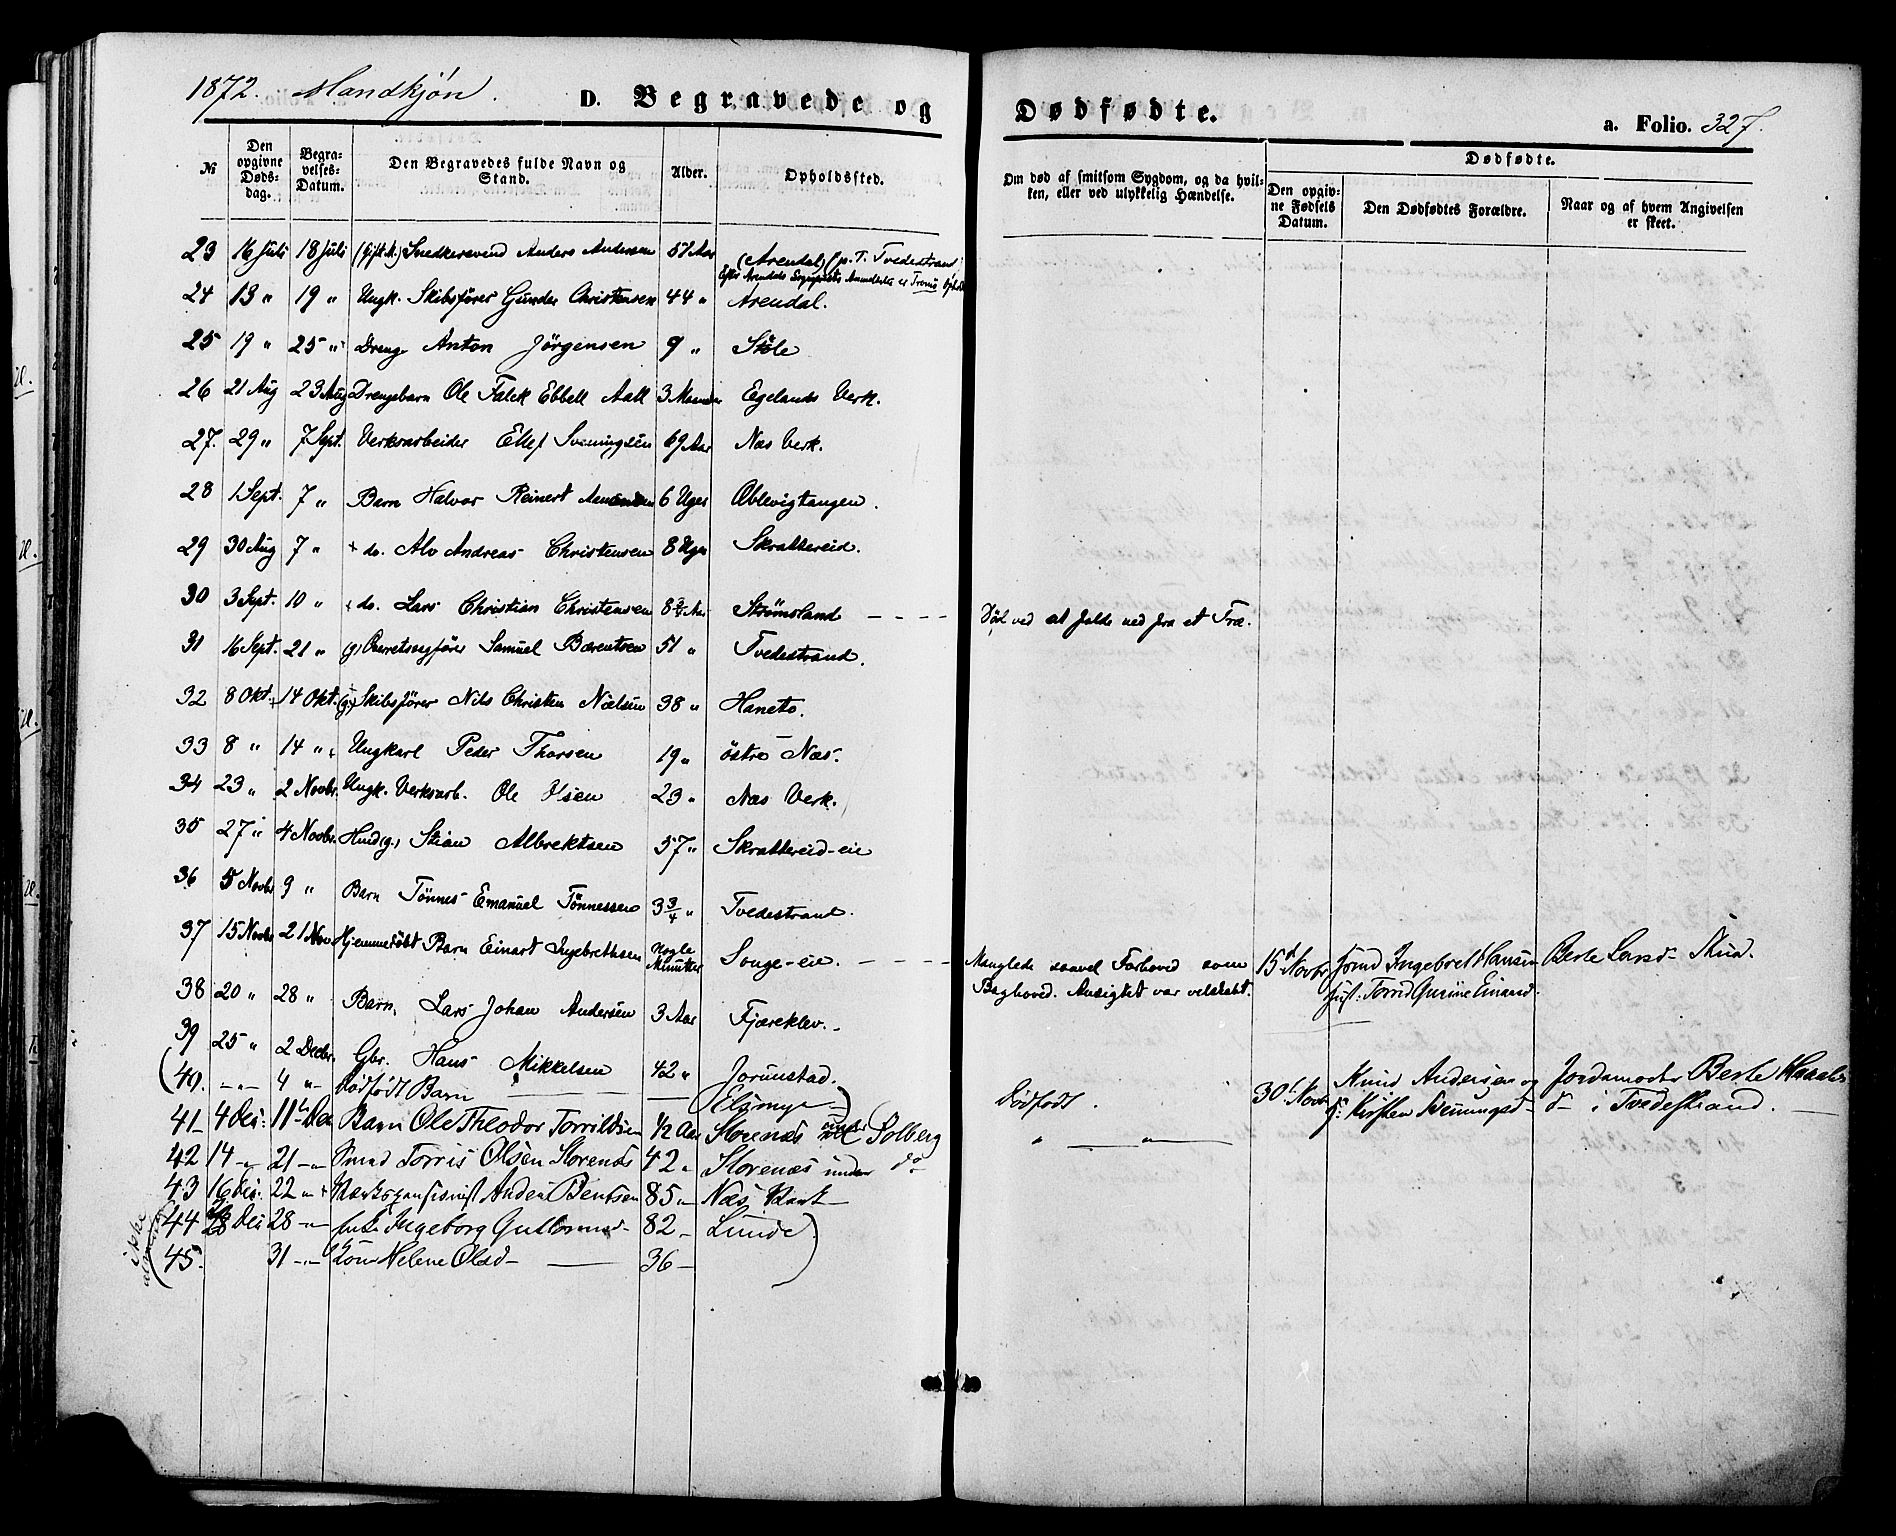 1872. Mandkjøn. D. Begravede og Dødfødte. a. Folio. 327.
№ Den opgivne Døds-dag. Begra-velses-Datum. Den Begravedes fulde Navn og Stand. Alder. Opholdssted. Om død af smitsom Sygdom, og da hvil-ken, eller ved ulykkelig Hændelse. Dødfødte. Den opgiv-ne Fødsels Datum. Den Dødfødtes Forældre. Naar og af hvem Angivelsen er skeet.
23 16 Juli 18 Juli (Gift M.) Snedkersvend Anders Andersen 57 Aar (Arendal) (p. T. Tvedestrand
24 13 " 19 " Ungk. Skibsfører Gunder Christensen 44 " Arendal.
25 19 " 25 " Dreng Anton Jörgensen 9 " Stöle
26 21 Aug 23 Aug Drengebarn Ole Falck Ebbell Aall 3 Maaneder Egelands Verk.
27. 29 " 7 Sept. Verksarbeider Ellef Sveningsen 69 Aar Næs Verk.
28 1 Sept. 7 " Barn Halvor Reinert 6 Uger Oblevigtangen.
29 30 Aug 7 " + do. Alv Andreas Christensen 8 Uger Skrattereid.
30 3 Sept. 10 " + do. Lars Christian Christensen 8 3/4 Aar Strømsland - - - - Död ved at falde ned fra et Træ.
31 16 Sept. 21 " (g) Overretssagfører Samuel Bærentsen 51 " Tvedestrand.
32 8 Okt. 14 Okt. (g) Skibsfører Nils Christen Nielsen 38 " Haneto.
33 8 " 14 " Ungkarl Peder Thorsen 19 " östre Næs.
34 23 " 2 Novbr. Ungk. Verksarb. Ole Olsen 23 " Næs Verk.
35 27 " 4 Novbr. Husm(g.) Stian Albrektsen 57 " Skrattereid-eie
36 5 Novbr 9 " Barn Tönnes Emanuel Tönnessen 3 3/4 " Tvedestrand.
37 15 Novbr 21 Nov Hjemmedöbt Barn Einart Ingebretsen Nogle Minutter Songe-eie. - - - - Manglede saavel Forhoved som Baghoved. Ansigtet var velskabt. 15d Novbr Ingebret Hansen Berte Lasd- Skua.
38 20 " 28 " Barn, Lars Johan Andersen 3 Aar Fjæreklev.
39 25 " 2 Decbr. Gbr. Hans Mikkelsen 42 " Jorunstad.
(40. - " - 4 " - Dödfödt Barn Dödfödt. 30d Novbr Knud Andersen og Kirsten Jordemoder Berte i Tvedestrand.
41 - 4 Dec: 11te Dec Barn Ole Theodor Torrildsen 1/2 Aar Storenæs under Solberg
42 14 - " 21 - " Torris Olsen Storenæs 42 " Storenæs under do
43 16 Dec. 22 - " + Anders Bentsen 85 - " Næs Værk -
(44 18 Dec 28 - " Ingeborg Guttormsd. 82 - Lunde)
(45. 31 - " - Kone Helene Olsd - 36 -
ikke